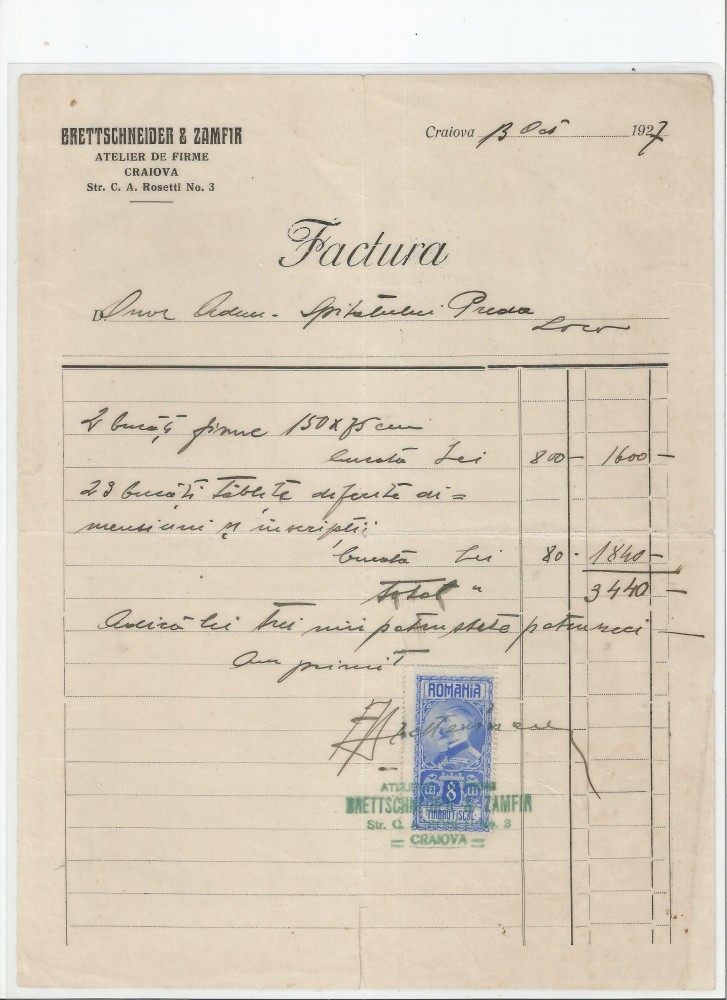 BRETTSCHNEIDER & ZAMFIR
ATELIER DE FIRME
CRAIOVA
Str. C. A. Rosetti No. 3
Craiova 13 Oct 1927
Factura
D. Onor Adm. Spitalului Preda
Loco
2 bucăți firme 150 x 75 cm
bucata Lei 800 - 1600 -
23 bucăți tăblițe diferite di=
mensiuni și inscripții
bucata Lei 80 - 1840 -
total " 3440 -
Adică lei trei mii patru sute patruzeci
Am primit
ROMANIA
8
TIMBRU FISCAL
BRETTSCHNEIDER & ZAMFIR
Str. C. A. No. 3
= CRAIOVA =